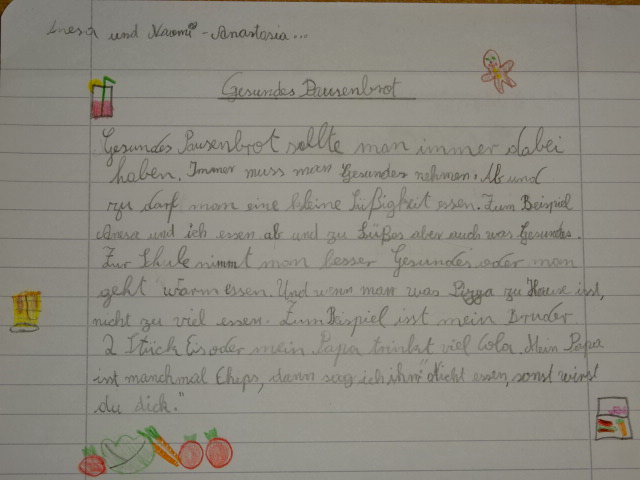 Anesa und Naomi-Anastasia...
Gesundes Pausenbrot
Gesundes Pausenbrot sollte man immer dabei
haben. Immer muss man Gesundes nehmen. Ab und
zu darf man eine kleine Süßigkeit essen. Zum Beispiel
Anesa und ich essen ab und zu Süßes aber auch was Gesundes.
Zur Schule nimmt man besser Gesundes oder man
geht warm essen. Und wenn man was Pizza zu Hause isst,
nicht zu viel essen. Zum Beispiel isst mein Bruder
2 Stück Eis oder mein Papa trinkt viel Cola. Mein Papa
isst manchmal Chips, dann sag ich ihm "Nicht essen, sonst wirst
du dick."